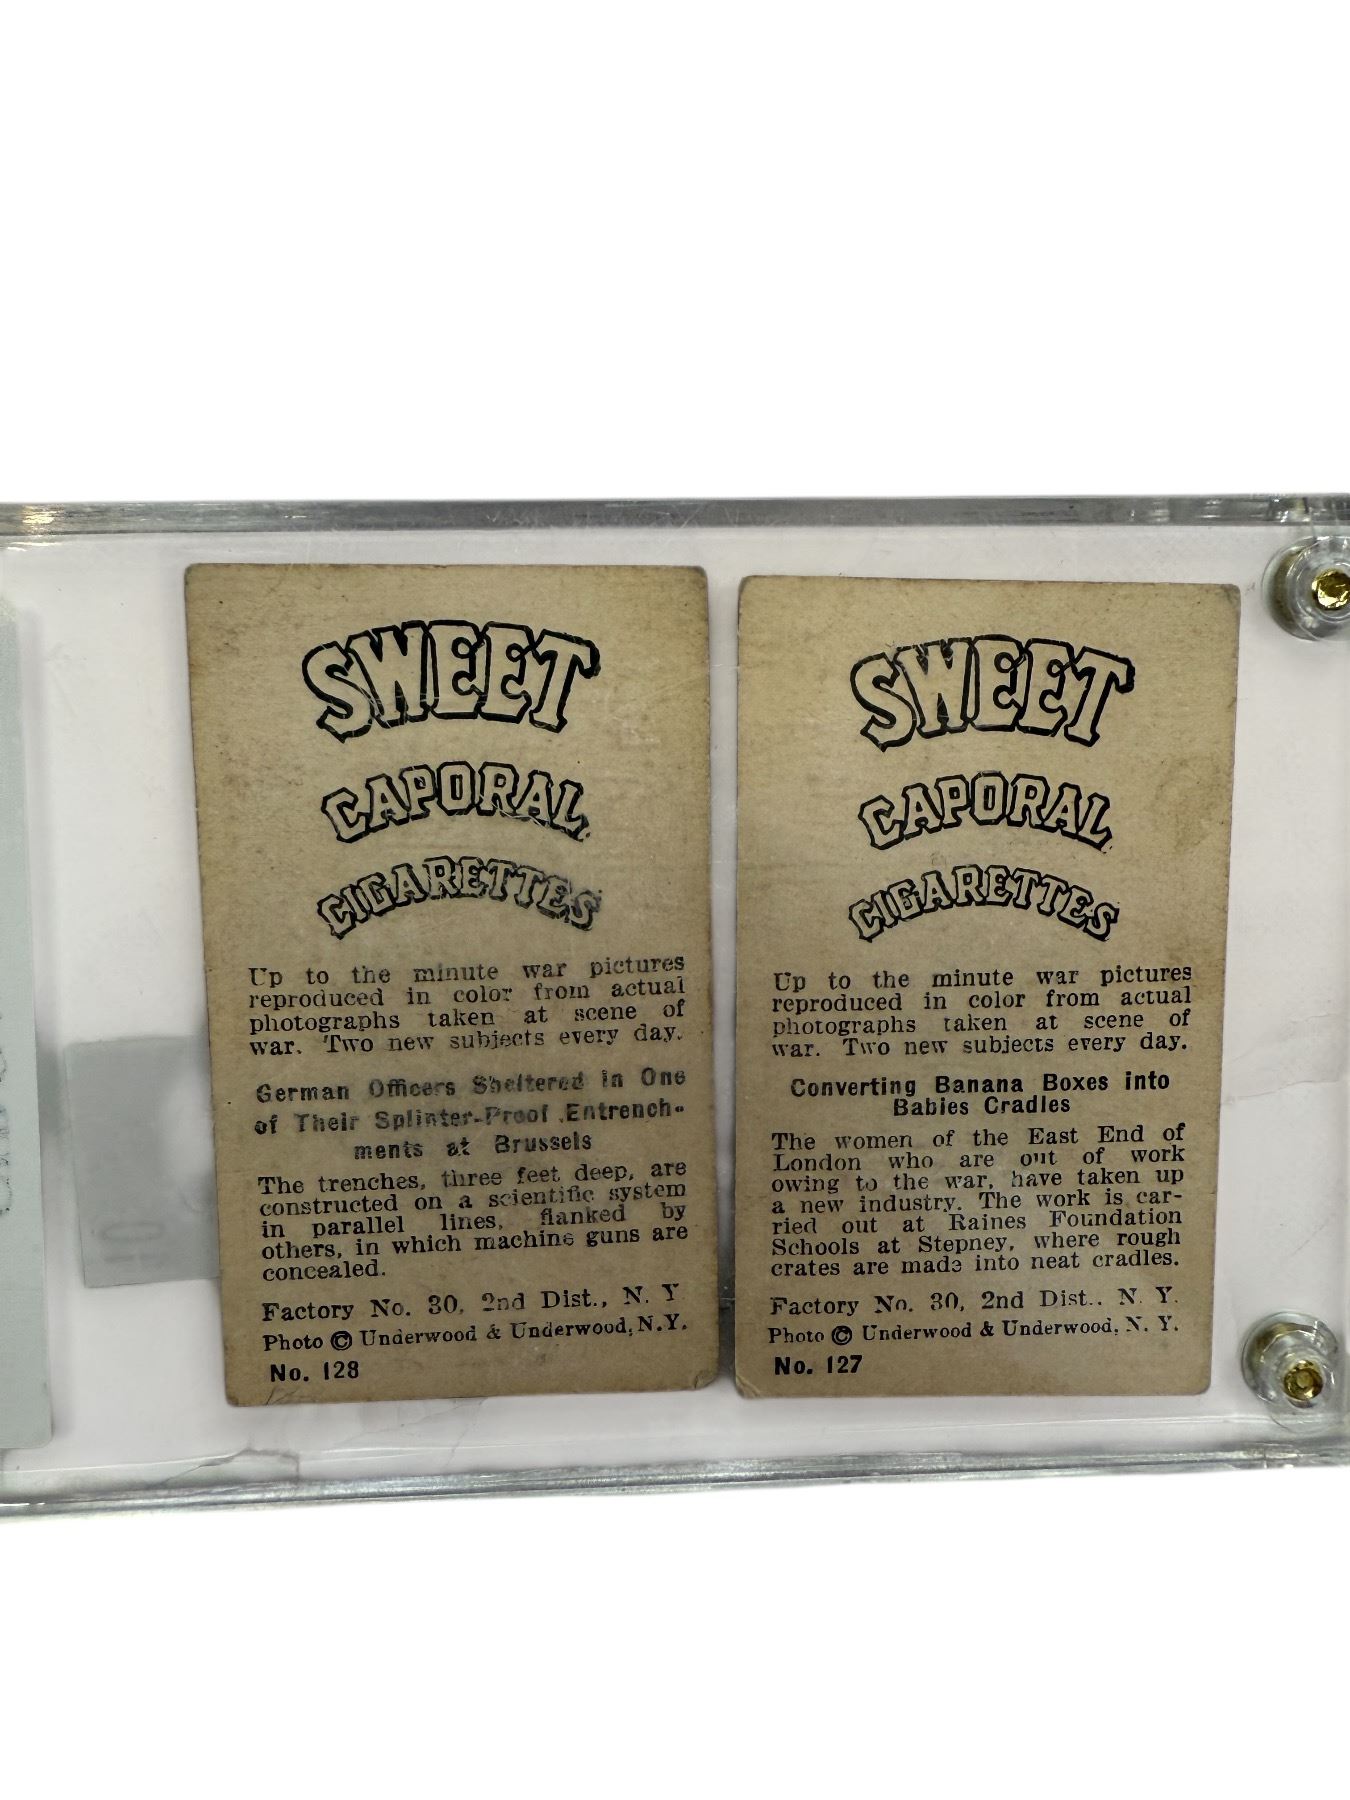 SWEET
CAPORAL
CIGARETTES
Up to the minute war pictures
reproduced in color from actual
photographs taken at scene of
war. Two new subjects every day.
German Officers Sheltered in One
of Their Splinter-Proof Entrench-
ments at Brussels
The trenches, three feet deep, are
constructed on a scientific system
in parallel lines, flanked by
others, in which machine guns are
concealed.
Factory No. 30, 2nd Dist., N. Y.
Photo © Underwood & Underwood, N.Y.
No. 128
SWEET
CAPORAL
CIGARETTES
Up to the minute war pictures
reproduced in color from actual
photographs taken at scene of
war. Two new subjects every day.
Converting Banana Boxes into
Babies Cradles
The women of the East End of
London who are out of work
owing to the war, have taken up
a new industry. The work is car-
ried out at Raines Foundation
Schools at Stepney, where rough
crates are made into neat cradles.
Factory No. 30, 2nd Dist., N. Y.
Photo © Underwood & Underwood, N. Y.
No. 127